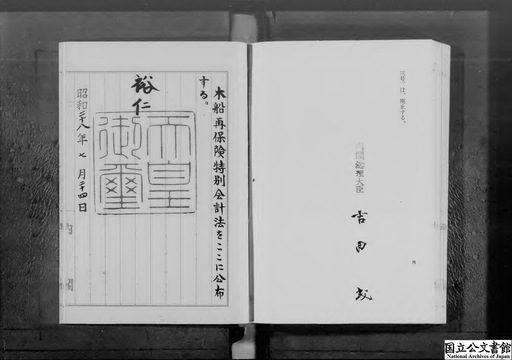 三号)は、廃止する。
内閣総理大臣
吉田茂
木船再保険特別会計法をここに公布
する。
裕仁
天皇
御璽
昭和二十八年七月二十四日
国立公文書館
National Archives of Japan